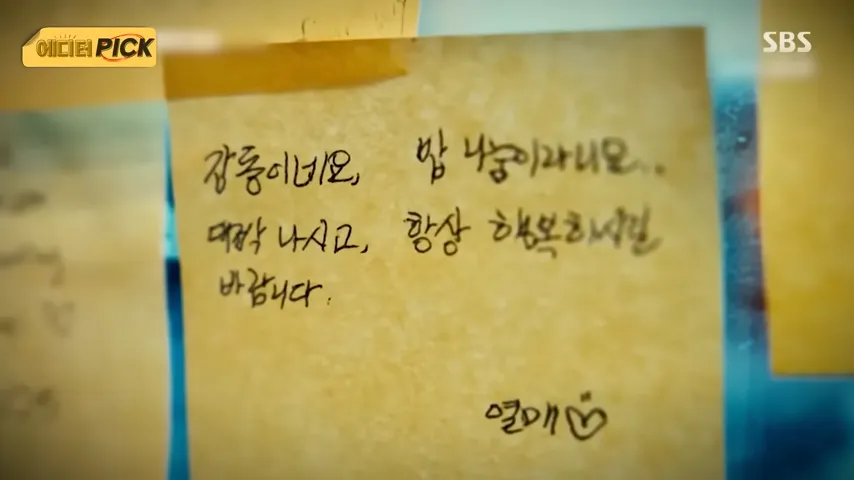 에디터 PICK
SBS
감동이네요, 밥 나눔이라니요...
대박 나시고, 항상 행복하시길
바랍니다.
열매♡